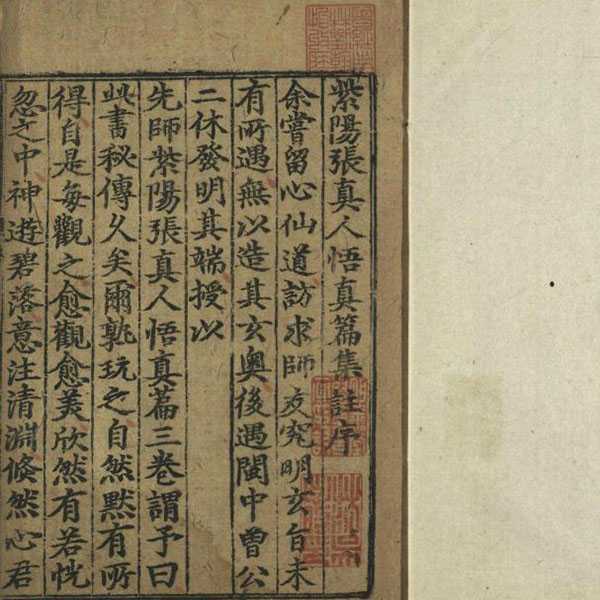 紫陽張真人悟真篇集註序
余嘗留心仙道訪求師友究明玄旨未
有所遇無以造其玄奥後遇閩中曹公
二休發明其端授以
先師紫陽張真人悟真篇三卷謂予曰
此書秘傳久矣爾孰玩之自然黙有所
得自是每觀之愈觀愈美欣然有若恍
忽之中神遊碧落意注清淵倐然心君